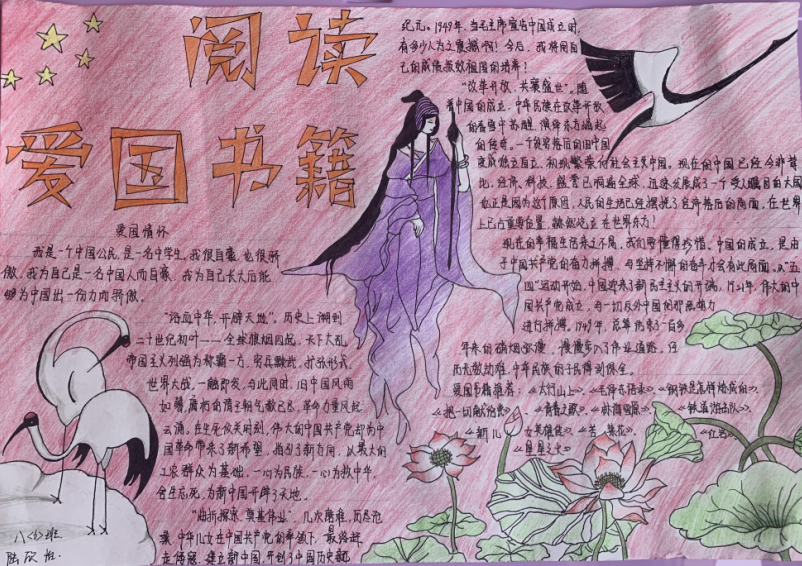 阅读
爱国书籍
爱国情怀
我是一个中国公民,是一名中学生,我很自豪,也很骄
傲,我为自己是一名中国人而自豪,我为自己长大后能
够为中国出一份力而骄傲。
"浴血中华,开辟天地"。历史上溯到
二十世纪初叶——全球狼烟四起,天下大乱,
帝国主义列强为称霸一方,穷兵黩武,扩张形式,
世界大战,一触即发,与此同时,旧中国风雨
如磐,腐朽的清王朝气数已尽,革命力量风起
云涌。在生死攸关时刻,伟大的中国共产党却为中
国革命带来了新希望,指引了新方向,以最大的
工农群众为基础,一心为民族,一心为救中华,
舍生忘死,为新中国开辟了天地。
"曲折探索,奠基伟业",几次磨难,历尽沧
桑,中华儿女在中国共产党的率领下,最终赶
走倭寇,建立新中国,开创了中国历史新
纪元。1949年,当毛主席宣告中国成立时,
有多少人为之震撼啊!今后,我将用自
己的成绩报效祖国的培养!
"改革开放,共襄盛世"。随
着中国的成立,中华民族在改革开放
的春雷中苏醒,演绎东方崛起
的传奇。一个贫穷落后的旧中国
变成独立自立,初现繁荣的社会主义中国。现在的中国已经今非昔
比,经济,科技,盛誉已响遍全球,迅速发展成了一个受人瞩目的大国
也正是因为这个原因,人民的生活已经摆脱了贫穷落后的局面。在世界
上已占重要位置,巍然屹立在世界东方!
现在的幸福生活来之不易,我们要懂得珍惜。中国的成立,是由
于中国共产党的奋力拼搏,与坚持不懈的奋斗力会有此局面。从"五
四"运动开始,中国迎来了新民主主义的开端,1921年,伟大的中
国共产党成立,与一切反外中国的邪恶势力
进行拼搏。1949年,改革伤亲了一百多
年来的硝烟弥漫,慢慢步入了伟业道路,任
历先敬劫难,中华民族的子民得到保全。
爱国书籍推荐:《太行山上》、《毛泽东语录》、《钢铁是怎样炼成的》、
《把一切献给党》、《青春之歌》、《林海雪原》、《铁道游击队》、
《新儿女英雄传》、《苦菜花》、《红岩》、
《星星之火》
八(4)班
陆欣怡.